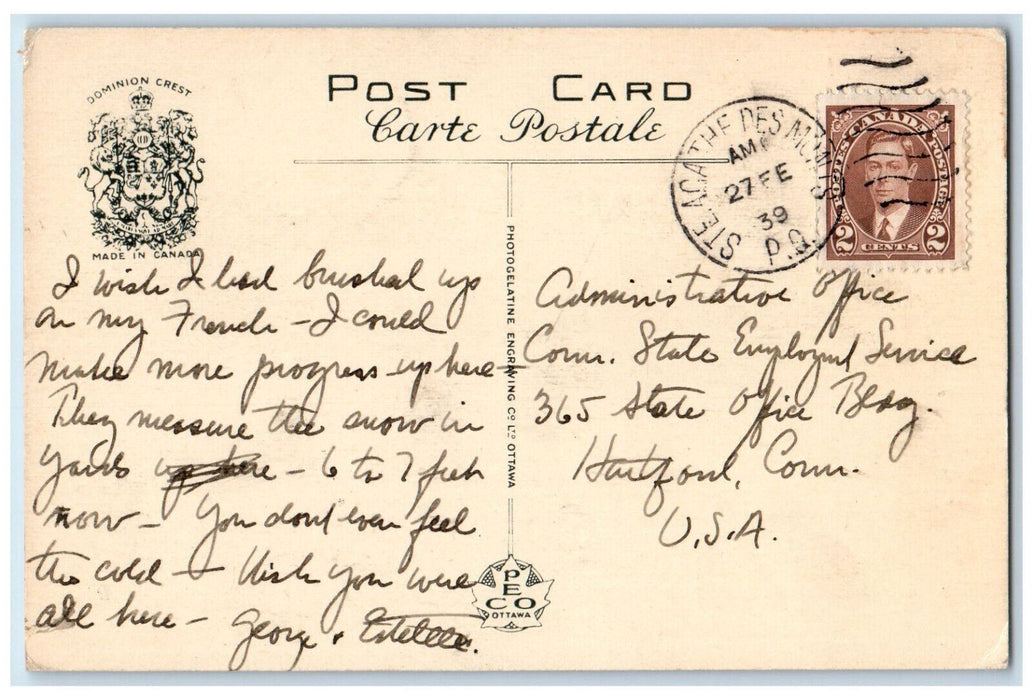 DOMINION CREST
MADE IN CANADA
POST CARD
Carte Postale
STE. AGATHE DES MONTS
AM
27 FE
39
P.Q.
POSTES CANADA POSTAGE
2 CENTS 2
I wish I had brushed up
on my French - I could
make more progress up here -
They measure the snow in
yards up here - 6 to 7 feet
now - You dont even feel
the cold - Wish you were
all here -
George & Estelle.
PHOTOGELATINE ENGRAVING CO. LTD. OTTAWA
PECO
OTTAWA
Administrative Office
Conn. State Employment Service
365 State Office Bldg.
Hartford, Conn.
U.S.A.